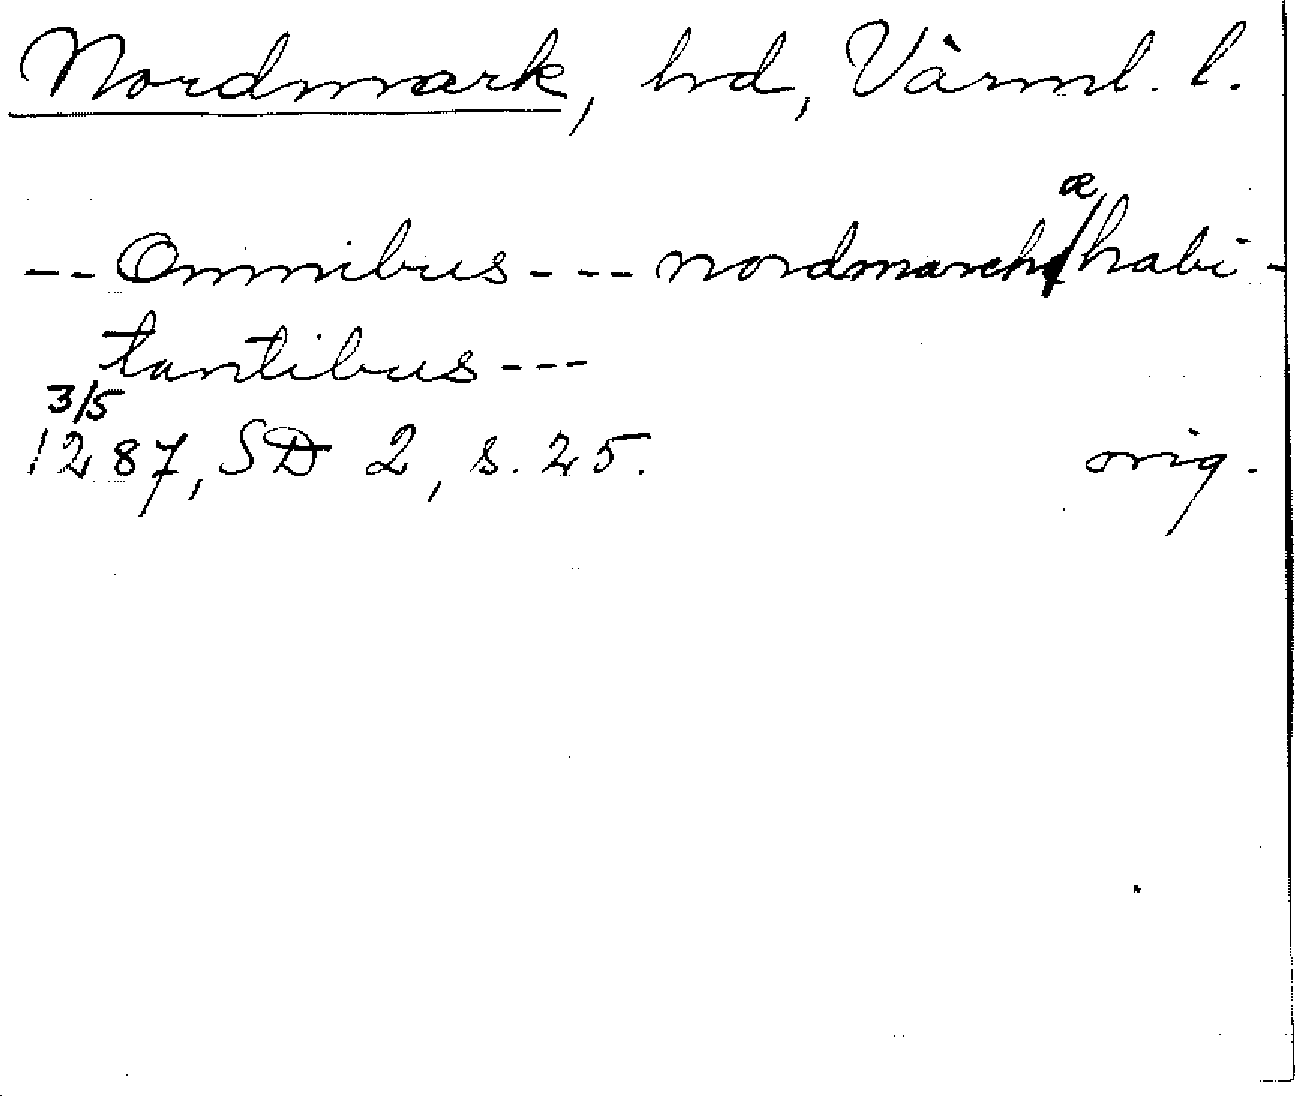 Nordmark, hd, Värml. l.
-- Omnibus --- nordmarchæ habi-
tantibus ---
3/5
1287, SD 2, s. 25. orig.